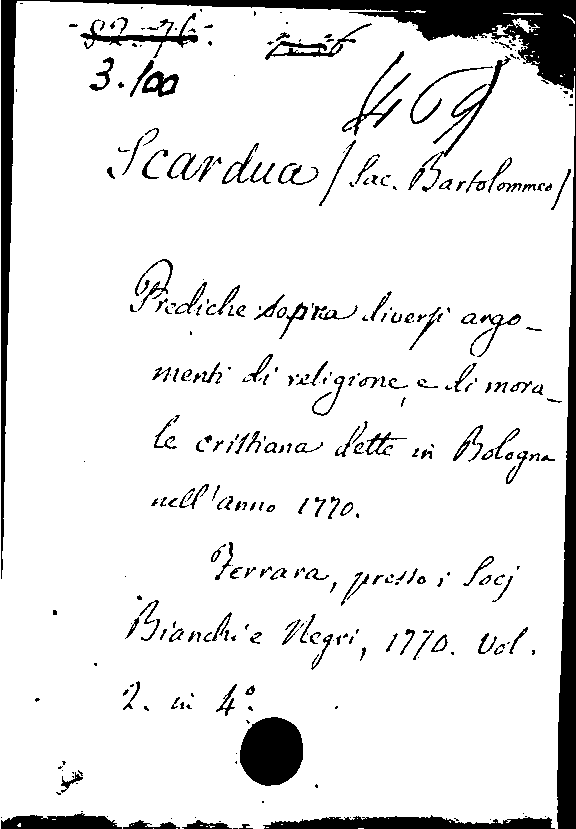 82-76.
3.100
469
Scardua / Sac. Bartolommeo /
Prediche sopra diversi argo-
menti di religione, e di mora-
le cristiana dette in Bologna
nell'anno 1770.
Ferrara, presso i Socj
Bianchi e Negri, 1770. Vol.
2. in 4º.